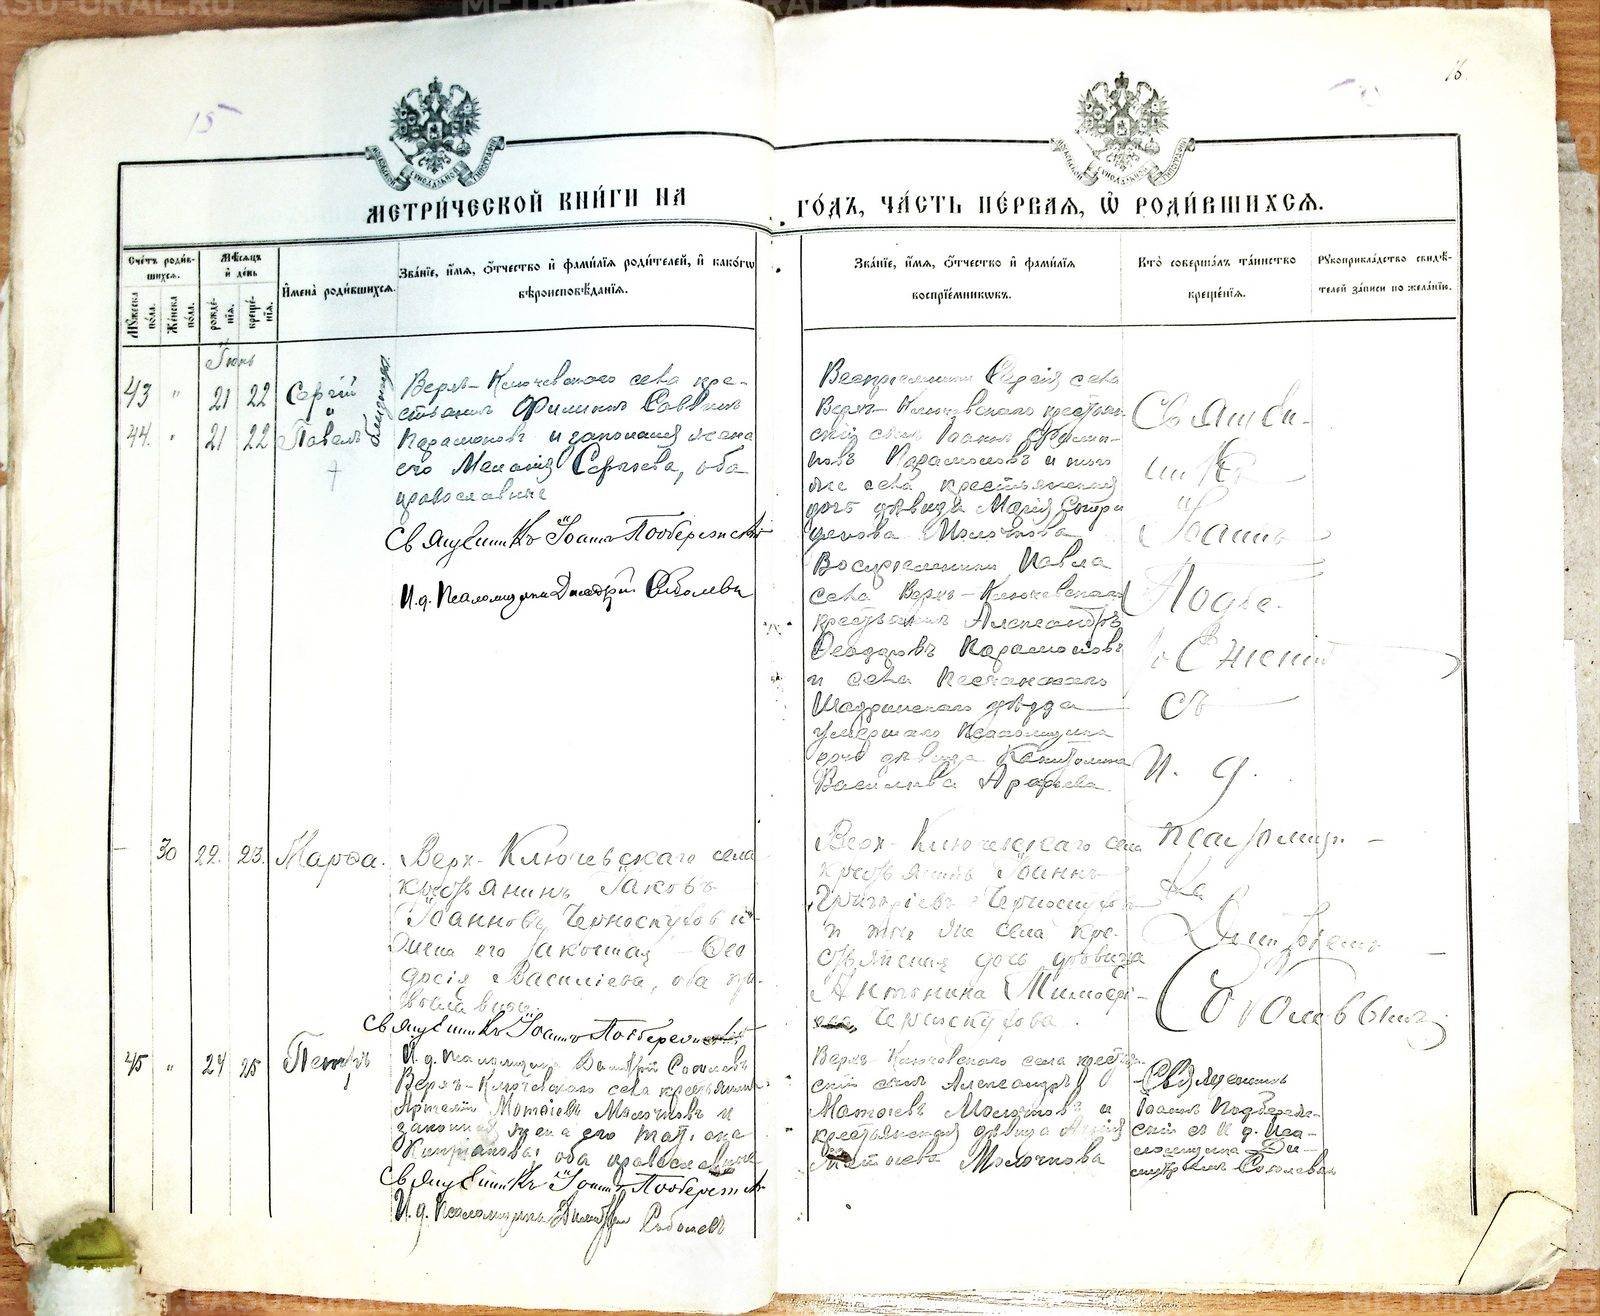 15
16
МЕТРИ́ЧЕСКОЙ КНИ́ГИ НА
ГО́ДЪ, ЧА́СТЬ ПЕ́РВАЯ, Ѡ РОДИ́ВШИХСЯ.
Сче́тъ роди́вшихся.
Му́жеска по́ла.
Же́нска по́ла.
Мѣ́сяцъ и де́нь
рожде́нія.
креще́нія.
И́мена роди́вшихся.
Зва́ніе, и́мя, о́тчество и фами́лія роди́телей, и како́гѡ
вѣроисповѣ́данія.
Зва́ніе, и́мя, о́тчество и фами́лія
воспріе́мникѡвъ.
Кто̀ соверша́лъ та́инство
креще́нія.
Рукоприкла́дство свидѣ́-
телей за́писи по жела́нію.
Іюнь
43 " 21 22 Сергій
44. " 21 22 Павелъ
близнецы
Верх-Ключевского села кре-
стьянинъ Филиппъ Саввинъ
Парамоновъ и законная жена
его Меланія Сергіева, оба
православные
Священникъ Іоаннъ Подбережскій
И.д. Псаломщика Димитрій Соболевъ
Воспріемники Сергія села
Верх-Ключевского крестьян-
скій сынъ Іоаннъ Филип-
повъ Парамоновъ и того
же села крестьянская
дочь дѣвица Марія
Молочкова
Воспріемники Павла
села Верх-Ключевского
крестьянинъ Александръ
Ѳеодоровъ Парамоновъ
и села Песчанского
Шадринскаго уѣзда
умершаго псаломщика
дочь дѣвица Капитолина
Васильева Арефьева
Священ-
никъ
Іоаннъ
Подбе-
режскій
съ
и. д.
псаломщи-
ка
Димитріемъ
Соболевымъ
— 30 22. 23. Марѳа.
Верх-Ключевскаго села
крестьянинъ Іаковъ
Іоанновъ Черноскутовъ и
жена его законная Ѳео-
досія Василіева, оба пра-
вославны.
Священникъ Іоаннъ Подбережскій
И.д. Псаломщика Димитрій Соболевъ
Верх-Ключевскаго села
крестьянинъ Іоаннъ
Григоріевъ Черноскутовъ
и того же села кре-
стьянская дочь дѣвица
Антонина
Черноскутова.
45 " 24 25 Петръ
Верх-Ключевского села крестьянинъ
Матѳіевъ Молочковъ и
законная жена его
оба православные
Священникъ Іоаннъ Подбережскій
И.д. Псаломщика Димитрій Соболевъ
Верх-Ключевского села крестьян-
скій сынъ Александръ
Матѳіевъ Молочковъ и
крестьянская дѣвица
Матѳіева Молочкова
Священникъ
Іоаннъ Подбереж-
скій съ И д. Пса-
ломщика Ди-
митріемъ Соболевымъ